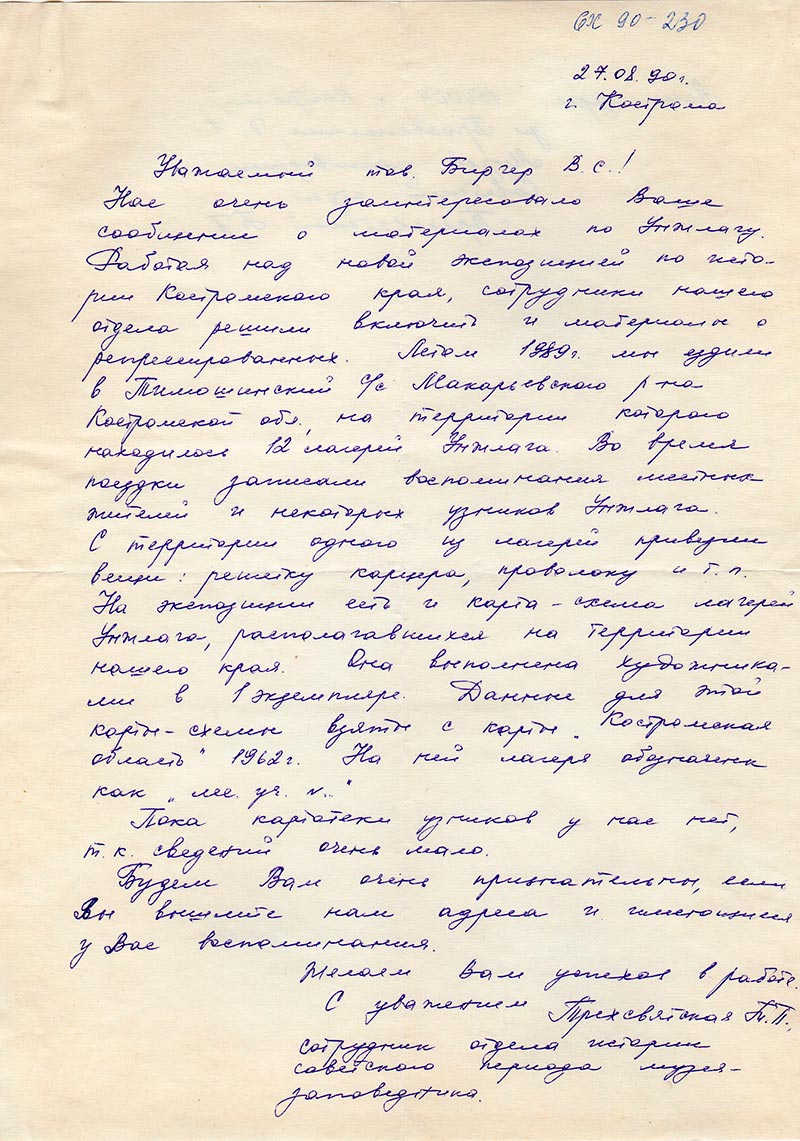 вх 90-230
27.08.90г.
г. Кострома
Уважаемый тов. Биргер В.С.!
Нас очень заинтересовало Ваше
сообщение о материалах по Унжлагу.
Работая над новой экспозицией по исто-
рии Костромского края, сотрудники нашего
отдела решили включить и материалы о
репрессированных. Летом 1989г. мы ездили
в Тимошинский с/с Макарьевского р-на
Костромской обл., на территории которого
находилось 12 лагерей Унжлага. Во время
поездки записали воспоминания местных
жителей и некоторых узников Унжлага.
С территории одного из лагерей привезли
вещи: решетку карцера, проволоку и т.п.
На экспозиции есть и карта-схема лагерей
Унжлага, располагавшихся на территории
нашего края. Она выполнена художника-
ми в 1 экземпляре. Данные для этой
карты-схемы взяты с карты „Костромская
область" 1962г. На ней лагеря обозначены
как „лес. уч. N.."
Пока картотеки узников у нас нет,
т.к. сведений очень мало.
Будем Вам очень признательны, если
Вы вышлите нам адреса и имеющиеся
у Вас воспоминания.
Желаем Вам успехов в работе.
С уважением Трехсвятская Т.П.,
сотрудник отдела истории
советского периода музея-
заповедника.